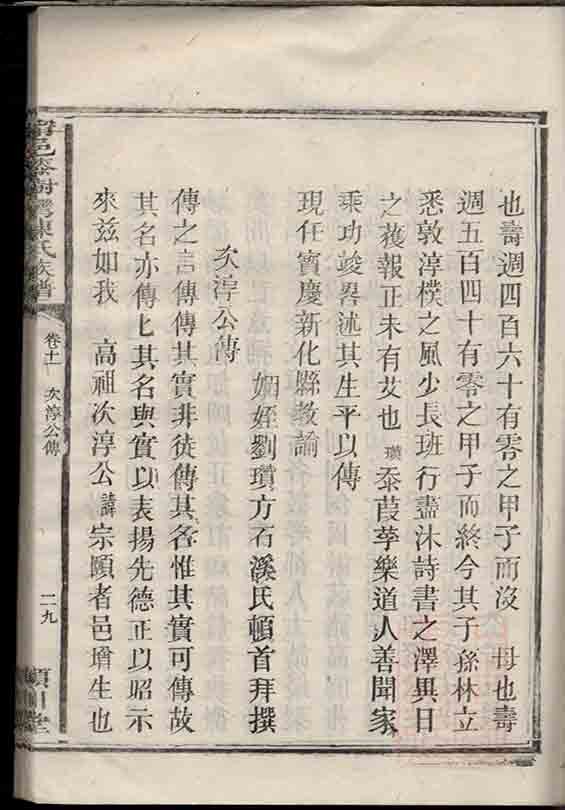 也壽週四百六十有零之甲子而沒　母也壽
週五百四十有零之甲子而終今其子孫林立
悉敦淳樸之風少長班行盡沐詩書之澤異日
之獲報正未有艾也瓚忝葭莩樂道人善聞家
乘功竣畧述其生平以傳
現任寶慶新化縣教諭
姻姪劉瓚方石溪氏頓首拜撰
次淳公傳
傳之言傳傳其實非徒傳其名惟其實可傳故
其名亦傳匕其名與實以表揚先德正以昭示
來茲如我　高祖次淳公諱宗頤者邑增生也
甯邑泰樹灣陳氏族譜
卷十一　次淳公傳
二九
潁川堂